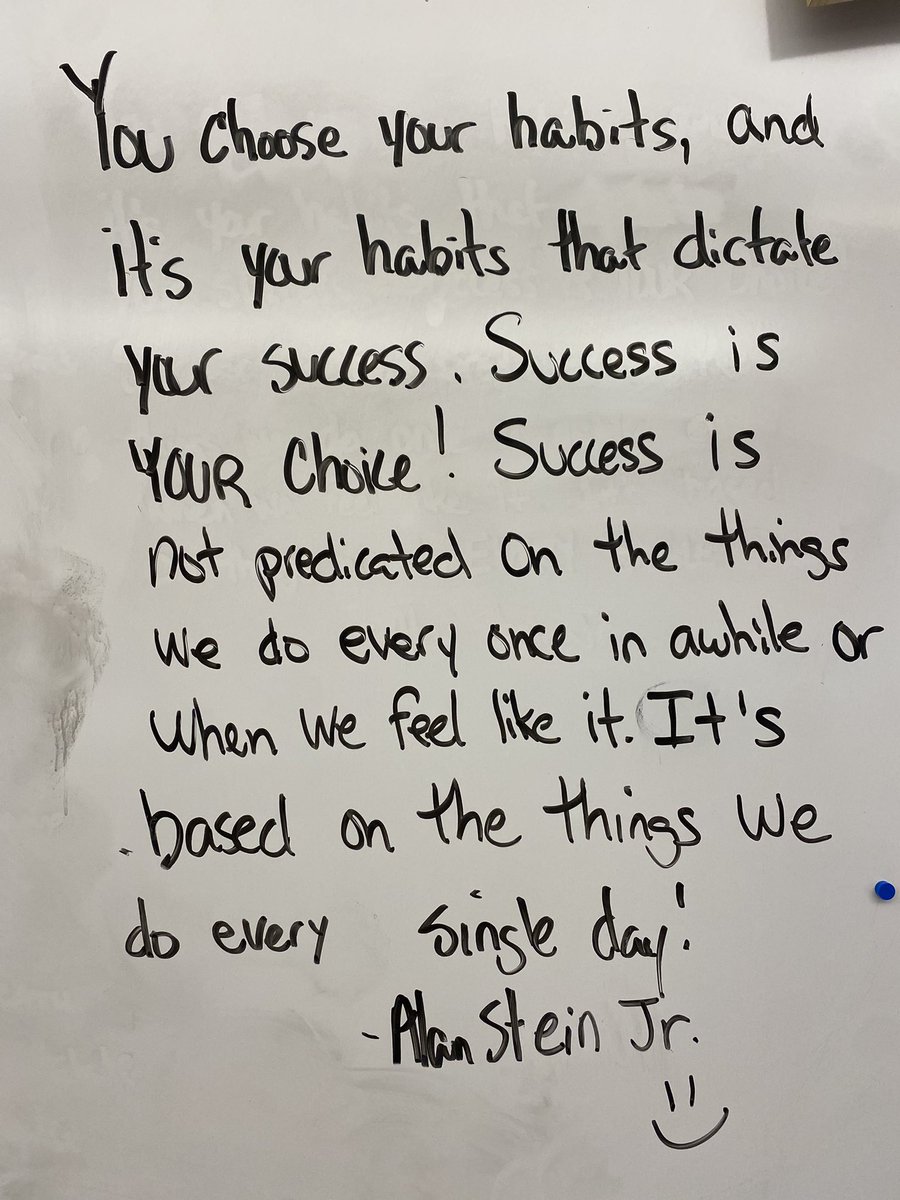 You choose your habits, and
it's your habits that dictate
your success. Success is
YOUR Choice! Success is
not predicated on the things
we do every once in awhile or
when we feel like it. It's
based on the things we
do every single day!
-Alan Stein Jr.